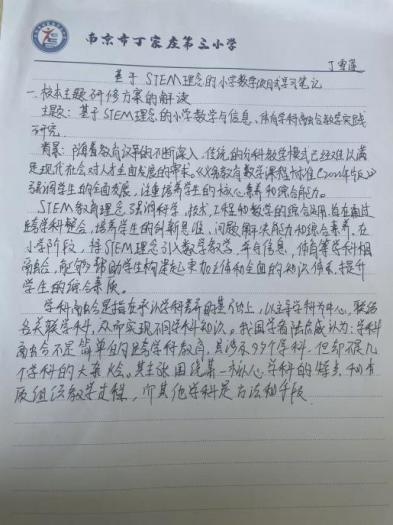 南京市丁家庄第三小学
丁雪莲
基于STEM理念的小学数学使用式学习笔记
一、校本主题研修方案的解读
主题：基于STEM理念的小学数学与信息、体育学科融合教学实践
研究
背景：随着教育改革的不断深入，传统的分科教学模式已经难以满
足现代社会对人才全面发展的需求。《义务教育数学课程标准(2022年版)》
强调学生的全面发展，注重培养学生的核心素养和综合能力。
STEM教育理念强调科学、技术、工程和数学的综合运用，旨在通过
跨学科整合，培养学生的创新思维、问题解决能力和综合素养。在
小学阶段，将STEM理念引入数学教学，并与信息、体育等学科相
融合，能够帮助学生构建起更加立体和全面的知识体系，提升
学生的综合素质。
学科融合是指在承认学科差异的基础上，以主导学科为中心，联络
各关联学科，从而实现不同学科知识。我国学者 认为：学科
融合不是简单的跨学科教育，虽涉及多个学科，但却不是几
个学科的大杂烩。其主张围绕某一核心学科的特点和有
效组织教学过程，而其他学科是方法和手段